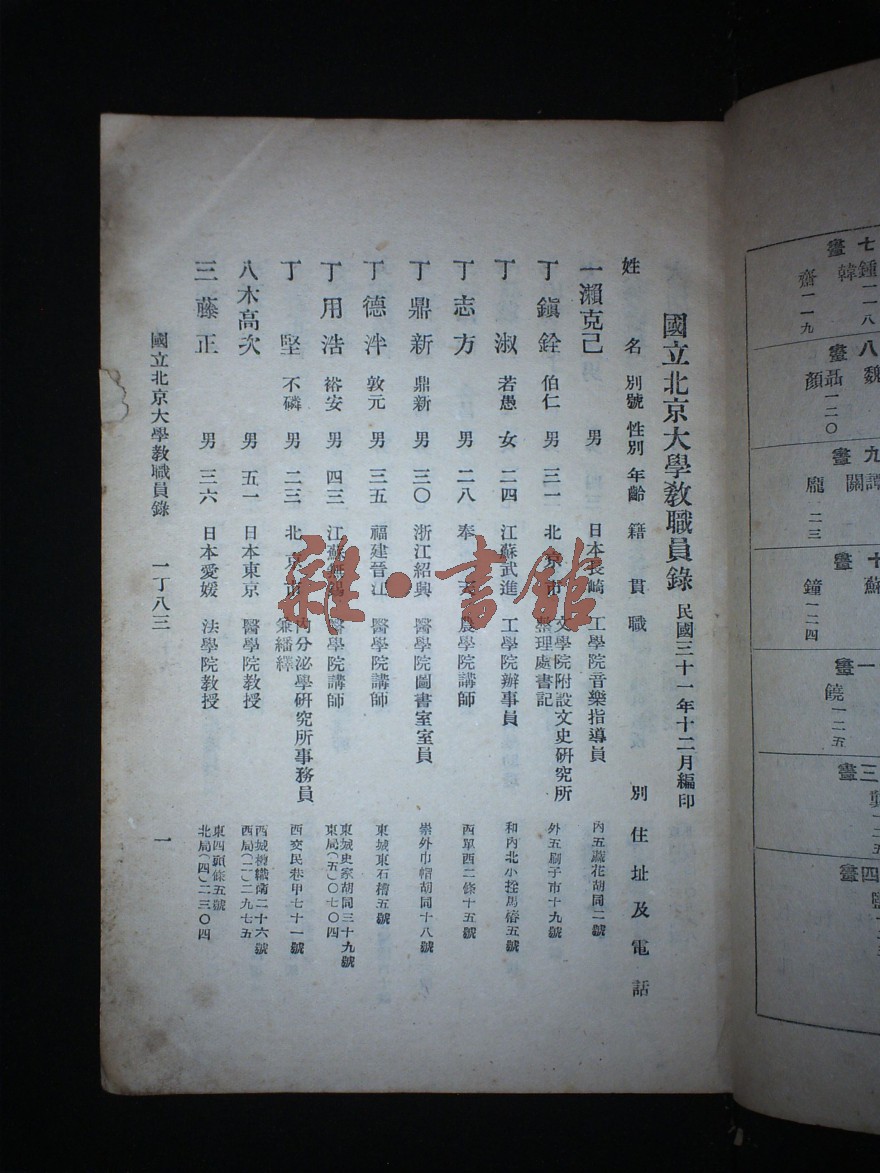 國立北京大學教職員錄 民國三十一年十二月編印
姓 名 別號 性別 年齡 籍 貫 職 別 住址及電話
一瀨克己 男 日本長崎 工學院音樂指導員 內五蔴花胡同二號
丁鎭銓 伯仁 男 三一 北京市 文學院附設文史硏究所整理處書記 外五刷子市十九號
丁 淑 若愚 女 二四 江蘇武進 工學院辦事員 和內北小拴馬樁五號
丁志方 男 二八 奉 天 農學院講師 西單西二條十五號
丁鼎新 鼎新 男 三〇 浙江紹興 醫學院圖書室室員 崇外巾帽胡同十八號
丁德泮 敦元 男 三五 福建晉江 醫學院講師 東城東石槽五號
丁用浩 裕安 男 四三 江蘇無錫 醫學院講師 東城史家胡同三十九號
東局(五)〇七〇四
丁 堅 不磷 男 二三 北京市 內分泌學硏究所事務員
兼繙繹 西交民巷甲七十一號
八木高次 男 五一 日本東京 醫學院教授 西城 二十六號
西局(二)二九七五
三藤正 男 三六 日本愛媛 法學院教授 東四頭條五號
北局(四)二三〇四
國立北京大學教職員錄 一丁八三 一
雜·書館
七畫
鍾一一八
韓
齋一一九
八畫
魏
聶一二〇
顏
九畫
譚
關
龐 二三
十畫
蘇
鐘一二四
一畫
饒一二五
三畫
四畫